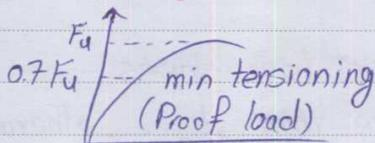 Fu
0.7 Fu
min tensioning
(Proof load)